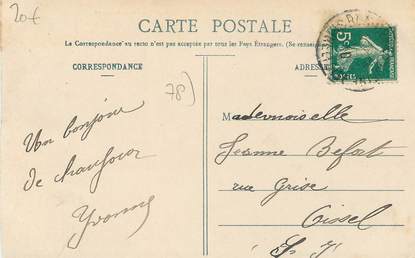 20€
CARTE POSTALE
La Correspondance au recto n'est pas acceptée par tous les Pays Étrangers. (Se renseigner
CORRESPONDANCE
ADRESSE
78)
5c
POSTES
Un bonjour
de Chaufour
Yvonne
Mademoiselle
Jeanne Befort
rue Grise
Oissel
S. I